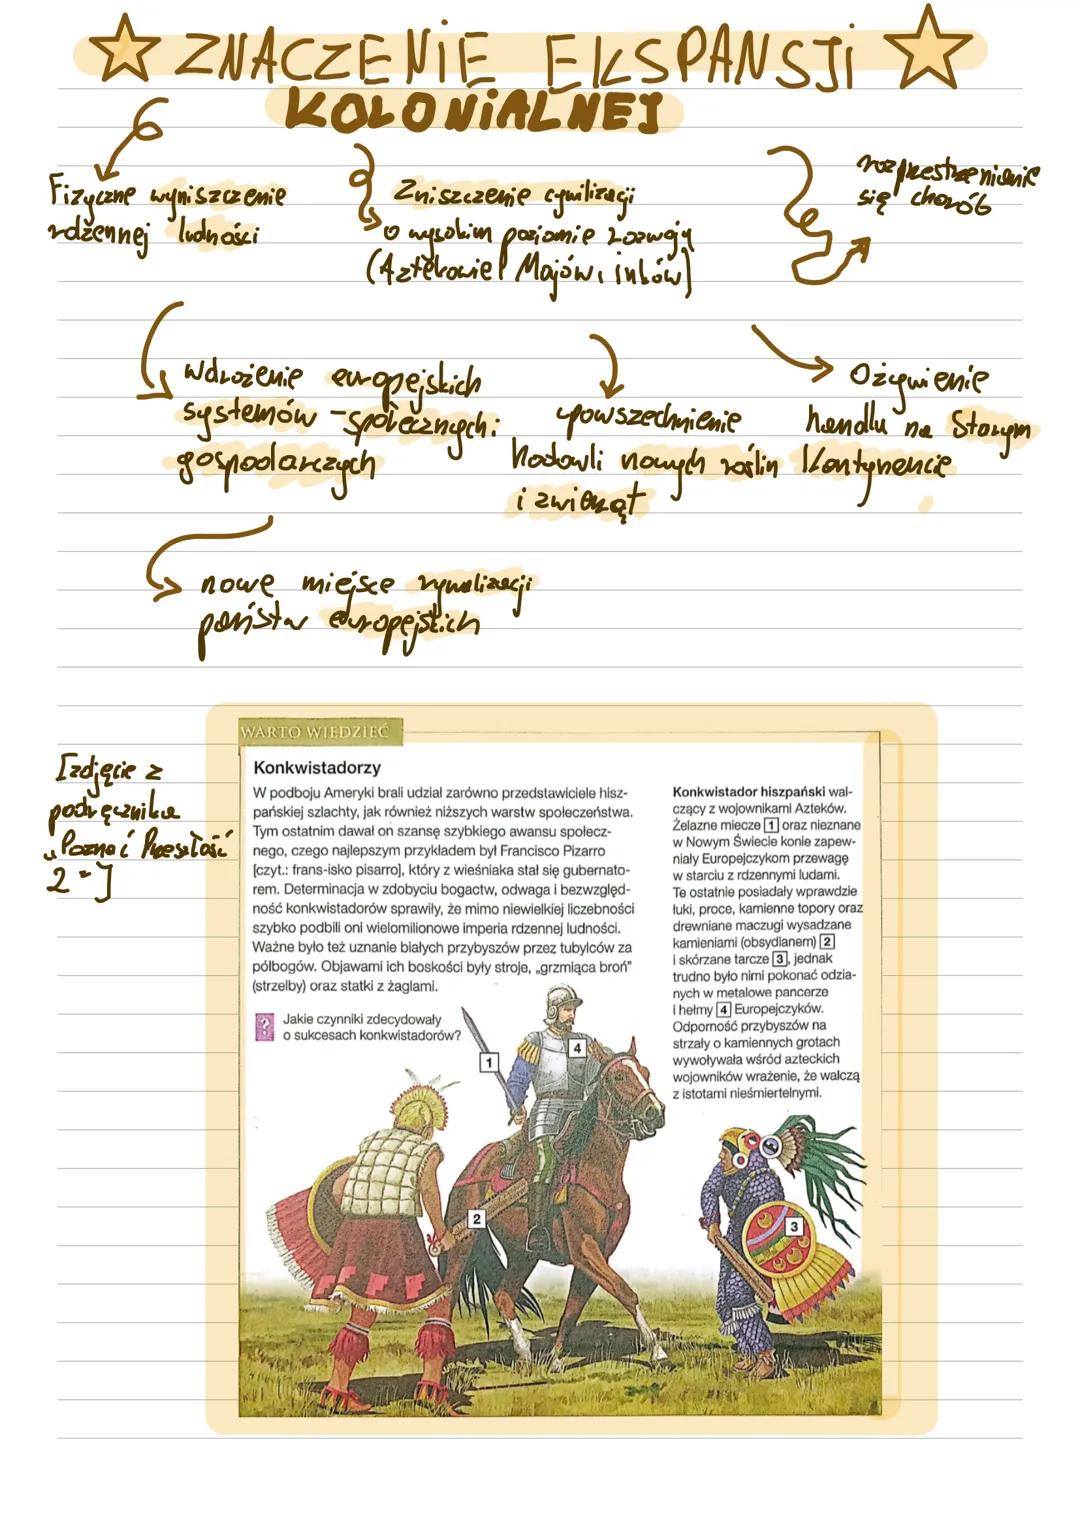 ZNACZENIE EKSPANSJI
KOLONIALNEJ
Fizyczne wyniszczenie
rdzennej ludności
Zniszczenie cywilizacji
o wysokim poziomie rozwoju
(Aztekowie Majów i inków)
rozprestrzenienie
się chorób
wdrożenie europejskich
systemów - społecznych i
gospodarczych
upowszechnienie
hodowli nowych roślin
i zwierząt
Ożywienie
handlu na Starym
Kontynencie
nowe miejsce rywalizacji
państw europejskich
[zdjęcie z
podręcznika
„Poznać Przeszłość
2"]
WARTO WIEDZIEĆ
Konkwistadorzy
W podboju Ameryki brali udział zarówno przedstawiciele hisz-
pańskiej szlachty, jak również niższych warstw społeczeństwa.
Tym ostatnim dawał on szansę szybkiego awansu społecz-
nego, czego najlepszym przykładem był Francisco Pizarro
[czyt.: frans-isko pisarro], który z wieśniaka stał się gubernato-
rem. Determinacja w zdobyciu bogactw, odwaga i bezwzględ-
ność konkwistadorów sprawiły, że mimo niewielkiej liczebności
szybko podbili oni wielomilionowe imperia rdzennej ludności.
Ważne było też uznanie białych przybyszów przez tubylców za
półbogów. Objawami ich boskości były stroje, „grzmiąca broń"
(strzelby) oraz statki z żaglami.
? Jakie czynniki zdecydowały
o sukcesach konkwistadorów?
Konkwistador hiszpański wal-
czący z wojownikami Azteków.
Żelazne miecze 1 oraz nieznane
w Nowym Świecie konie zapew-
niały Europejczykom przewagę
w starciu z rdzennymi ludami.
Te ostatnie posiadały wprawdzie
łuki, proce, kamienne topory oraz
drewniane maczugi wysadzane
kamieniami (obsydianem) 2
i skórzane tarcze 3, jednak
trudno było nimi pokonać odzia-
nych w metalowe pancerze
i hełmy 4 Europejczyków.
Odporność przybyszów na
strzały o kamiennych grotach
wywoływała wśród azteckich
wojowników wrażenie, że walczą
z istotami nieśmiertelnymi.
1
4
2
3